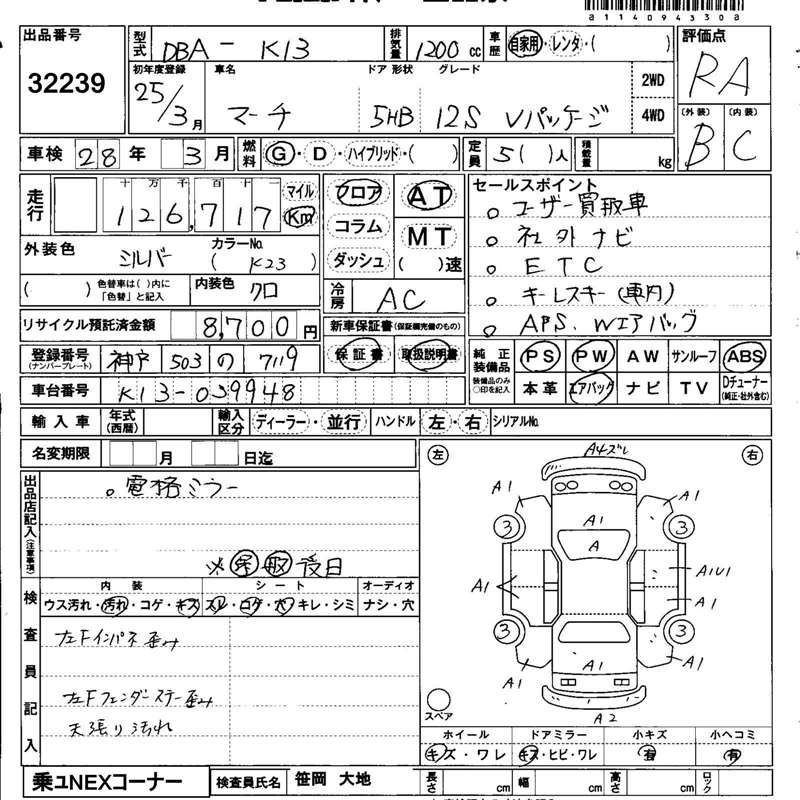 a11409433​0a
出品番号 型式 DBA - K13 排気量 1200 cc 車歴 自家用・レンタ・( ) 評価点
32239 RA
初年度登録 車名 ドア 形状 グレード 2WD
25/3月 マーチ 5HB 12S Vパッケージ 4WD
(外装) (内装)
B C
車検 28年 3月 燃料 G・D・ハイブリッド・( ) 定員 5( )人 積載量 kg
走行 十万千百十 マイル
126,717 Km
フロア AT
コラム MT
ダッシュ ( )速
セールスポイント
。ユーザー買取車
。社外ナビ
。ETC
。キーレスキー(車内)
。APS、Wエアバッグ
外装色 シルバー カラーNo. (K23)
( ) 色替車は( )内に「色替」と記入 内装色 クロ
冷房 AC
リサイクル預託済金額 8,700円
新車保証書(保証継続完備のもの)
保証書 取扱説明書
登録番号(ナンバープレート) 神戸 503 の 7119
車台番号 K13-059948
純正装備品 装備品のみ○印を記入
PS PW AW サンルーフ ABS
本革 エアバッグ ナビ TV Dチューナー(純正・社外含む)
輸入車 年式(西暦) 輸入区分 ディーラー・並行 ハンドル 左・右 シリアルNo.
名変期限 月 日迄
出品店記入(注意事項)
。電格ミラー
※保取後日
左 右
A4ズレ
A1 A1
A1
3 3
A
A1 A1U1
A1
3 3
A1
A1 A1
A2
スペア
検査員記入
内装 シート オーディオ
ウス汚れ・汚れ・コゲ・キズ スレ・コゲ・穴・キレ・シミ ナシ・穴
左Fインパネ歪み
左Fフェンダーステー歪み
天張り汚れ
ホイール ドアミラー 小キズ 小ヘコミ
キズ・ワレ キズ・ヒビ・ワレ 有 有
乗ュNEXコーナー 検査員氏名 笹岡 大地 長さ cm 幅 cm 高さ cm ロック